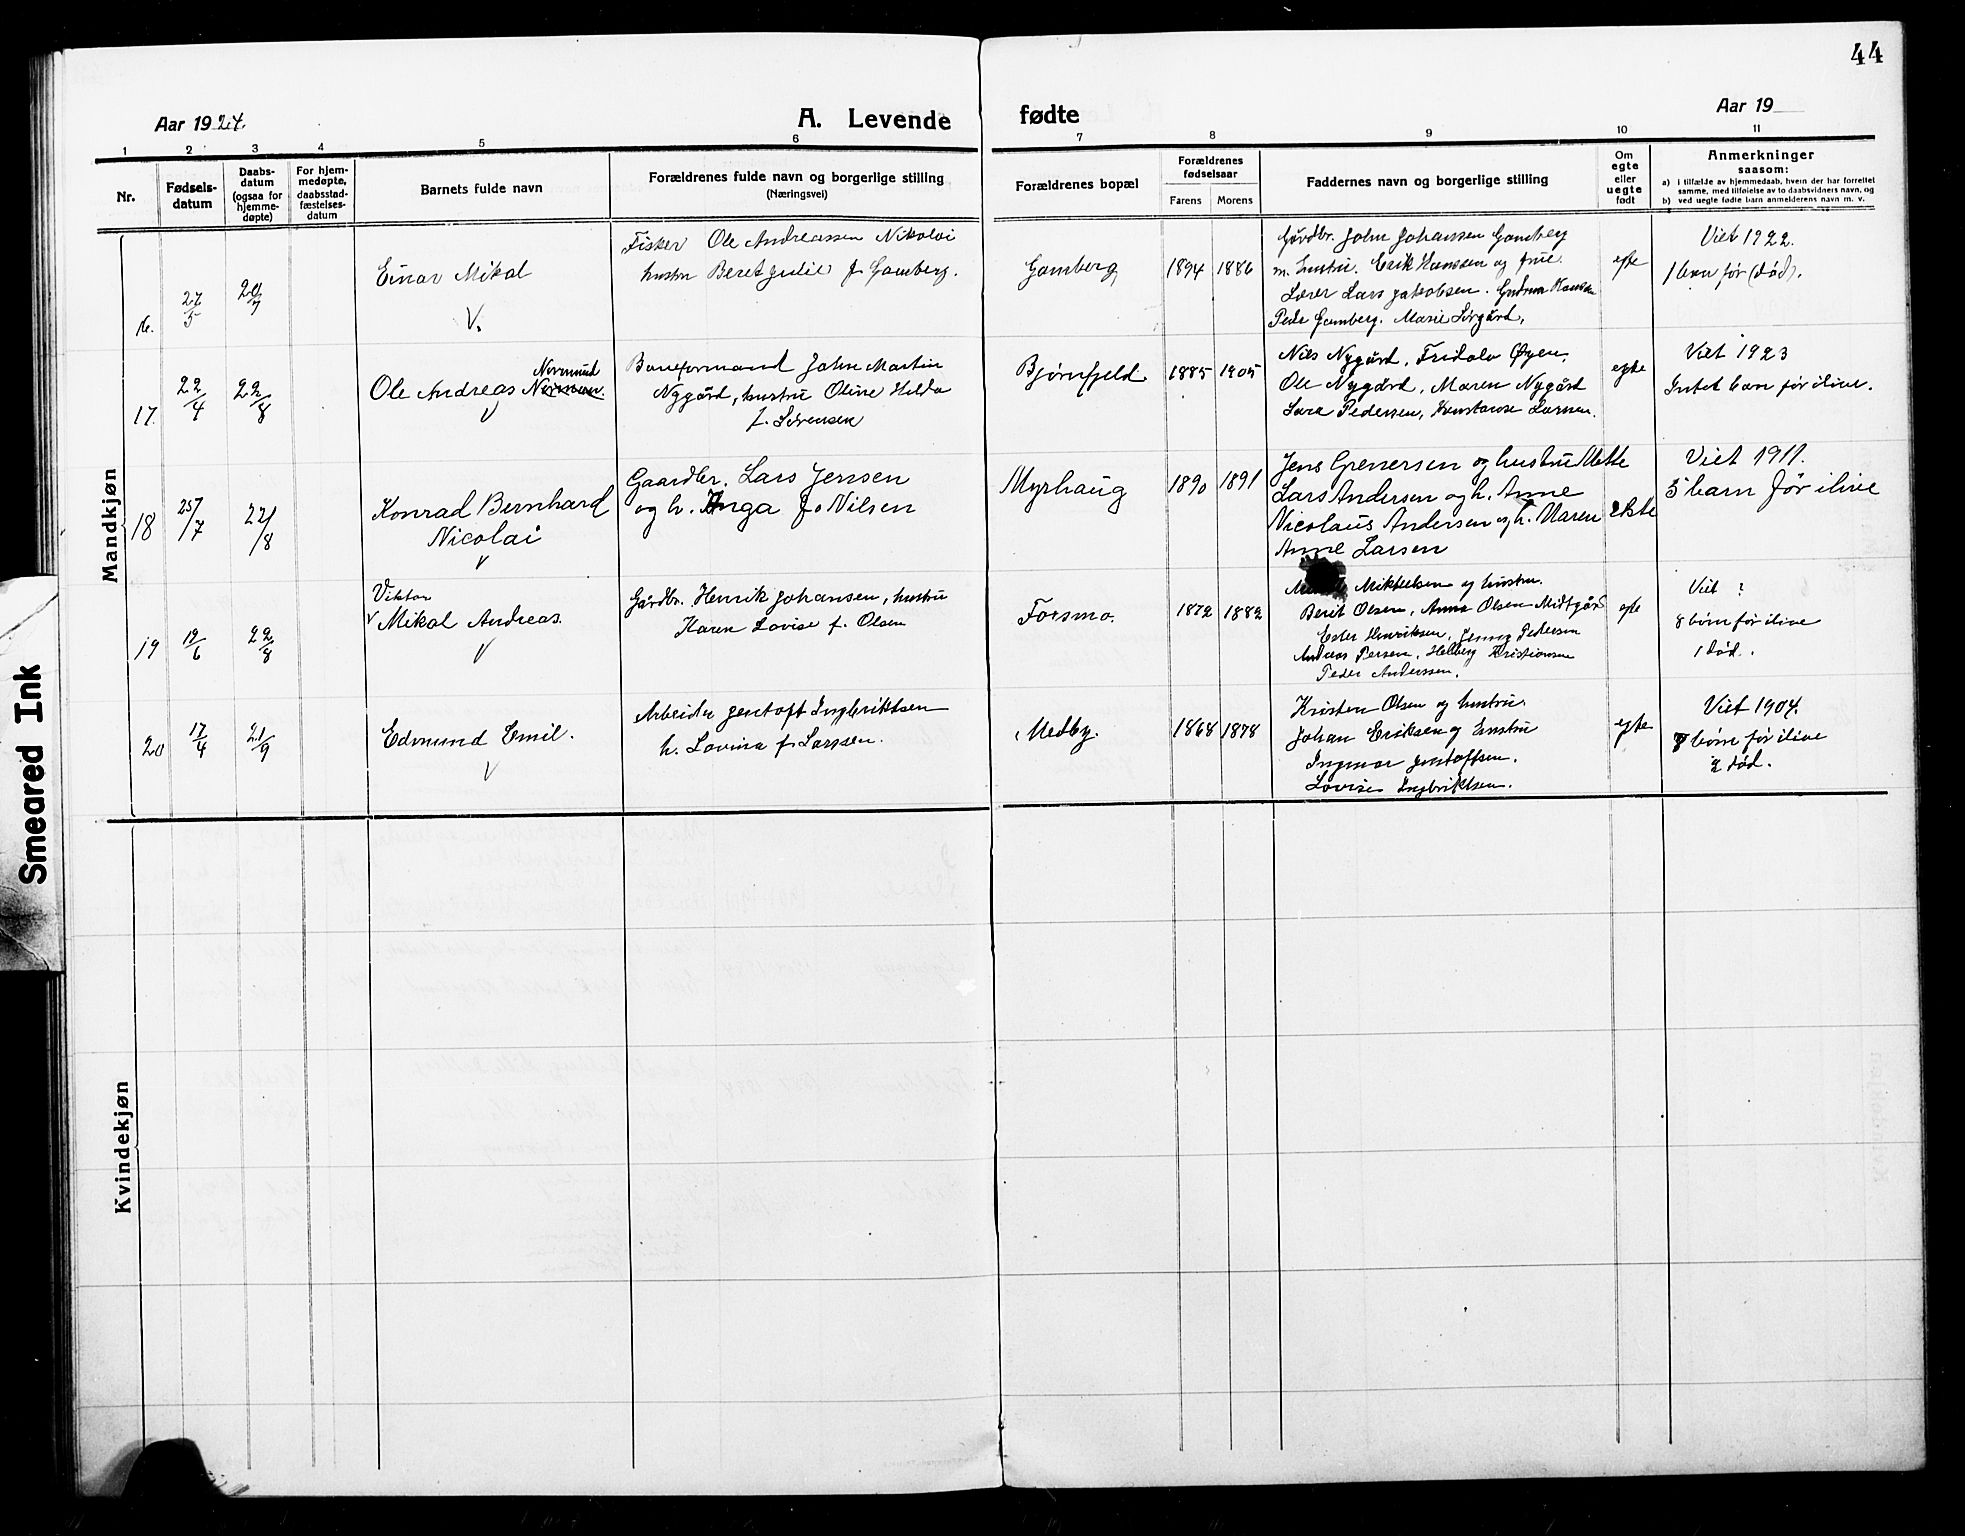 44
Aar 1924.
A. Levende
fødte
Aar 19
1 2 3 4 5 6 7 8 9 10 11
Nr.
Fødsels-
datum
Daabs-
datum
(ogsaa for
hjemme-
døpte)
For hjem-
medøpte,
daabsstad-
fæstelses-
datum
Barnets fulde navn
Forældrenes fulde navn og borgerlige stilling
(Næringsvei)
Forældrenes bopæl
Forældrenes
fødselsaar
Farens Morens
Faddernes navn og borgerlige stilling
Om
egte
eller
uegte
født
Anmerkninger
saasom:
a) i tilfælde av hjemmedaab, hvem der har forrettet
samme, med tilføielse av to daabsvidners navn, og
b) ved uegte fødte barn anmelderens navn m. v.
Mandkjøn
16.
27/5
20/7
Einar Mikal
V.
Fisker Ole Andreassen Nikolai
hustru Beret Julie f. Gamberg.
Gamberg
1894 1886
Gårdbr. John Johanssen Gamberg
m. hustru. Erik Hanssen og frue.
Lærer Lars Jakobsen. Gudrun Hanssen
Peder Gamberg. Marie Sørgård.
egte
Viet 1922.
1 barn før (død).
17.
22/4
22/8
Normund
Ole Andreas
V
Baneformand John Martin
Nygård, hustru Oline Helda
f. Sørensen
Bjørnfjeld
1885 1905
Nils Nygård, Fridolv Øyen.
Ole Nygård, Maren Nygård
Sara Pedersen, Konstanse Larsen.
egte
Viet 1923
Intet barn før ilive.
18
25/7
22/8
Konrad Bernhard
Nicolai
V
Gaardbr. Lars Jensen
og h. Inga f. Nilsen
Myrhaug
1890 1891
Jens Grenersen og hustru Mette
Lars Andersen og h. Anne
Nicolaus Andersen og h. Maren
Anne Larsen
ekte
Viet 1911.
5 barn før ilive
19
12/6
22/8
Viktor
V Mikal Andreas.
V
Gårdbr. Henrik Johansen, hustru
Karen Lovise f. Olsen
Forsmo.
1872 1882
Mikkelsen og hustru.
Berit Olsen, Anna Olsen Midtgård
Ester Henriksen, Jenny Pedersen
Andreas Persen, Helberg Kristiansen
Peder Anderssen.
egte
Viet ?
8 børn før ilive
1 død.
20
17/4
21/9
Edmund Emil.
V
Arbeider Jentoft Ingbriktsen
h. Lovina f. Larssen.
Medby.
1868 1878
Kristen Olsen og hustru.
Johan Eriksen og hustru
Ingmar Jentoftsen.
Lovise Ingbriktsen.
egte
Viet 1904.
børn før ilive
2 død.
Kvindekjøn
Smeared Ink